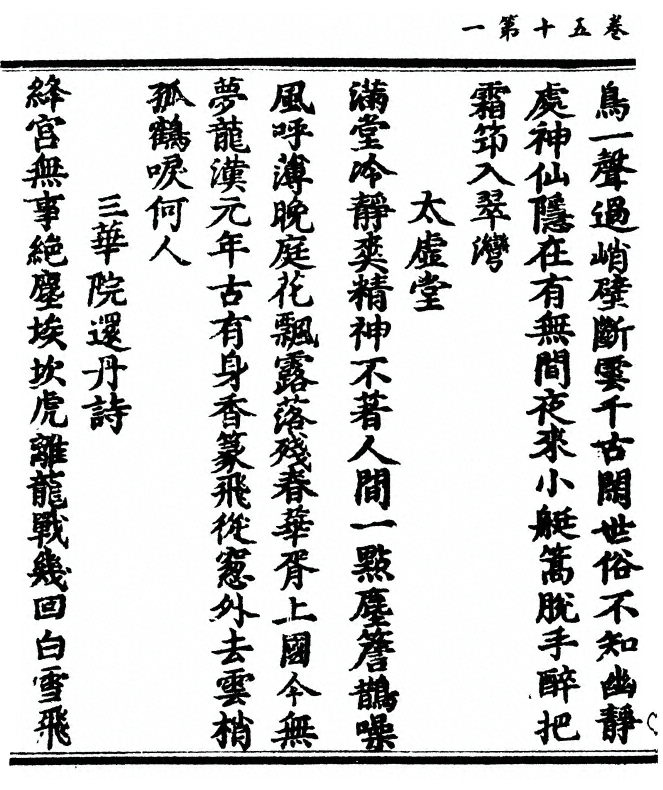 卷五十第一
鳥一聲過峭壁斷雲千古閑世俗不知幽靜
處神仙隱在有無間夜來小艇篙脫手醉把
霜笻入翠灣
太虛堂
滿堂吟靜爽精神不著人間一點塵簷鵲噪
風呼薄晚庭花飄露落殘春華胥上國今無
夢龍漢元年古有身香篆飛從窻外去雲梢
孤鶴唳何人
三華院還丹詩
絳宮無事絶塵埃坎虎離龍戰幾回白雪飛